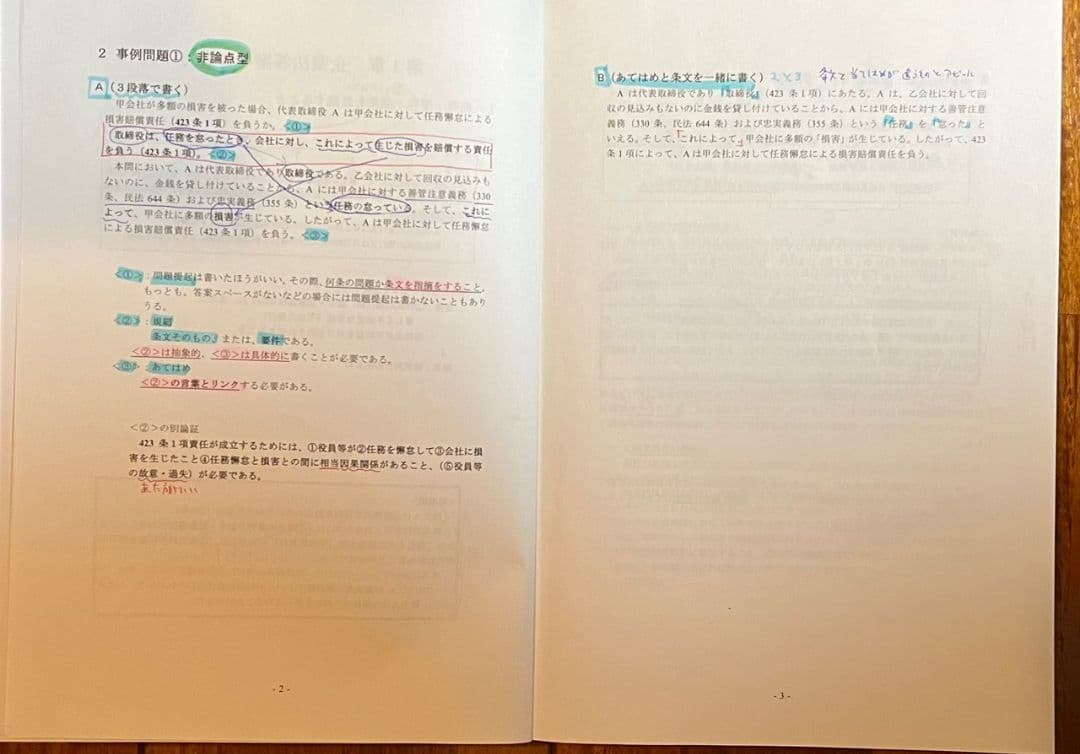 2 事例問題①：非論点型
A（3段落で書く）
甲会社が多額の損害を被った場合、代表取締役 A は甲会社に対して任務懈怠による
損害賠償責任（423 条 1 項）を負うか。<①>
取締役は、任務を怠ったとき、会社に対し、これによって生じた損害を賠償する責任
を負う（423 条 1 項）。<②>
本問において、A は代表取締役であり取締役である。乙会社に対して回収の見込みも
ないのに、金銭を貸し付けていることから、A には甲会社に対する善管注意義務（330
条、民法 644 条）および忠実義務（355 条）という任務の怠っている。そして、これに
よって、甲会社に多額の損害が生じている。したがって、A は甲会社に対して任務懈怠
による損害賠償責任（423 条 1 項）を負う。<③>
<①>：問題提起は書いたほうがいい。その際、何条の問題か条文を指摘をすること。
もっとも、答案スペースがないなどの場合には問題提起は書かないこともあり
うる。
<②>：規範
条文そのもの』または、要件である。
<②>は抽象的、<③>は具体的に書くことが必要である。
<③>：あてはめ
<②>の言葉とリンクする必要がある。
<②>の別論証
423 条 1 項責任が成立するためには、①役員等が②任務を懈怠して③会社に損
害を生じたこと④任務懈怠と損害との間に相当因果関係があること、（⑤役員等
の故意・過失）が必要である。
- 2 -
B（あてはめと条文を一緒に書く）
A は代表取締役であり『取締役』（423 条 1 項）にあたる。A は、乙会社に対して回
収の見込みもないのに金銭を貸し付けていることから、A には甲会社に対する善管注意
義務（330 条、民法 644 条）および忠実義務（355 条）という『任務』を『怠った』と
いえる。そして、「これによって」甲会社に多額の「損害」が生じている。したがって、423
条 1 項によって、A は甲会社に対して任務懈怠による損害賠償責任を負う。
- 3 -